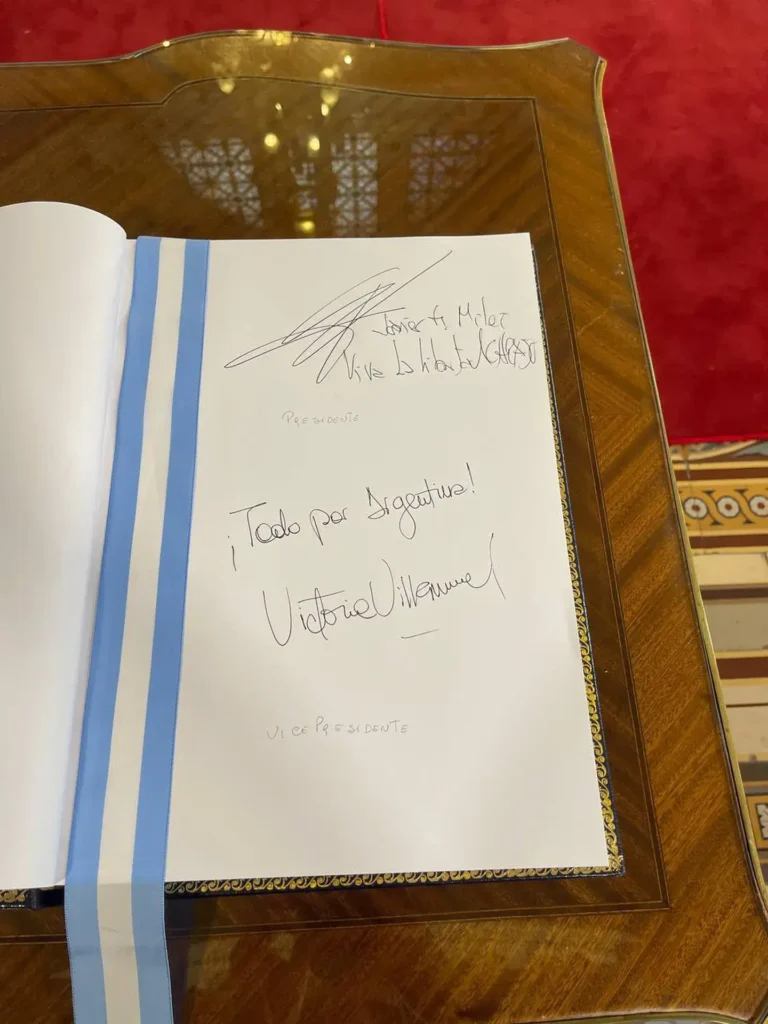 Javier G Milei
Viva la libertad CARAJO
PRESIDENTE
¡Todo por Argentina!
Victoria Villarruel
VICEPRESIDENTE